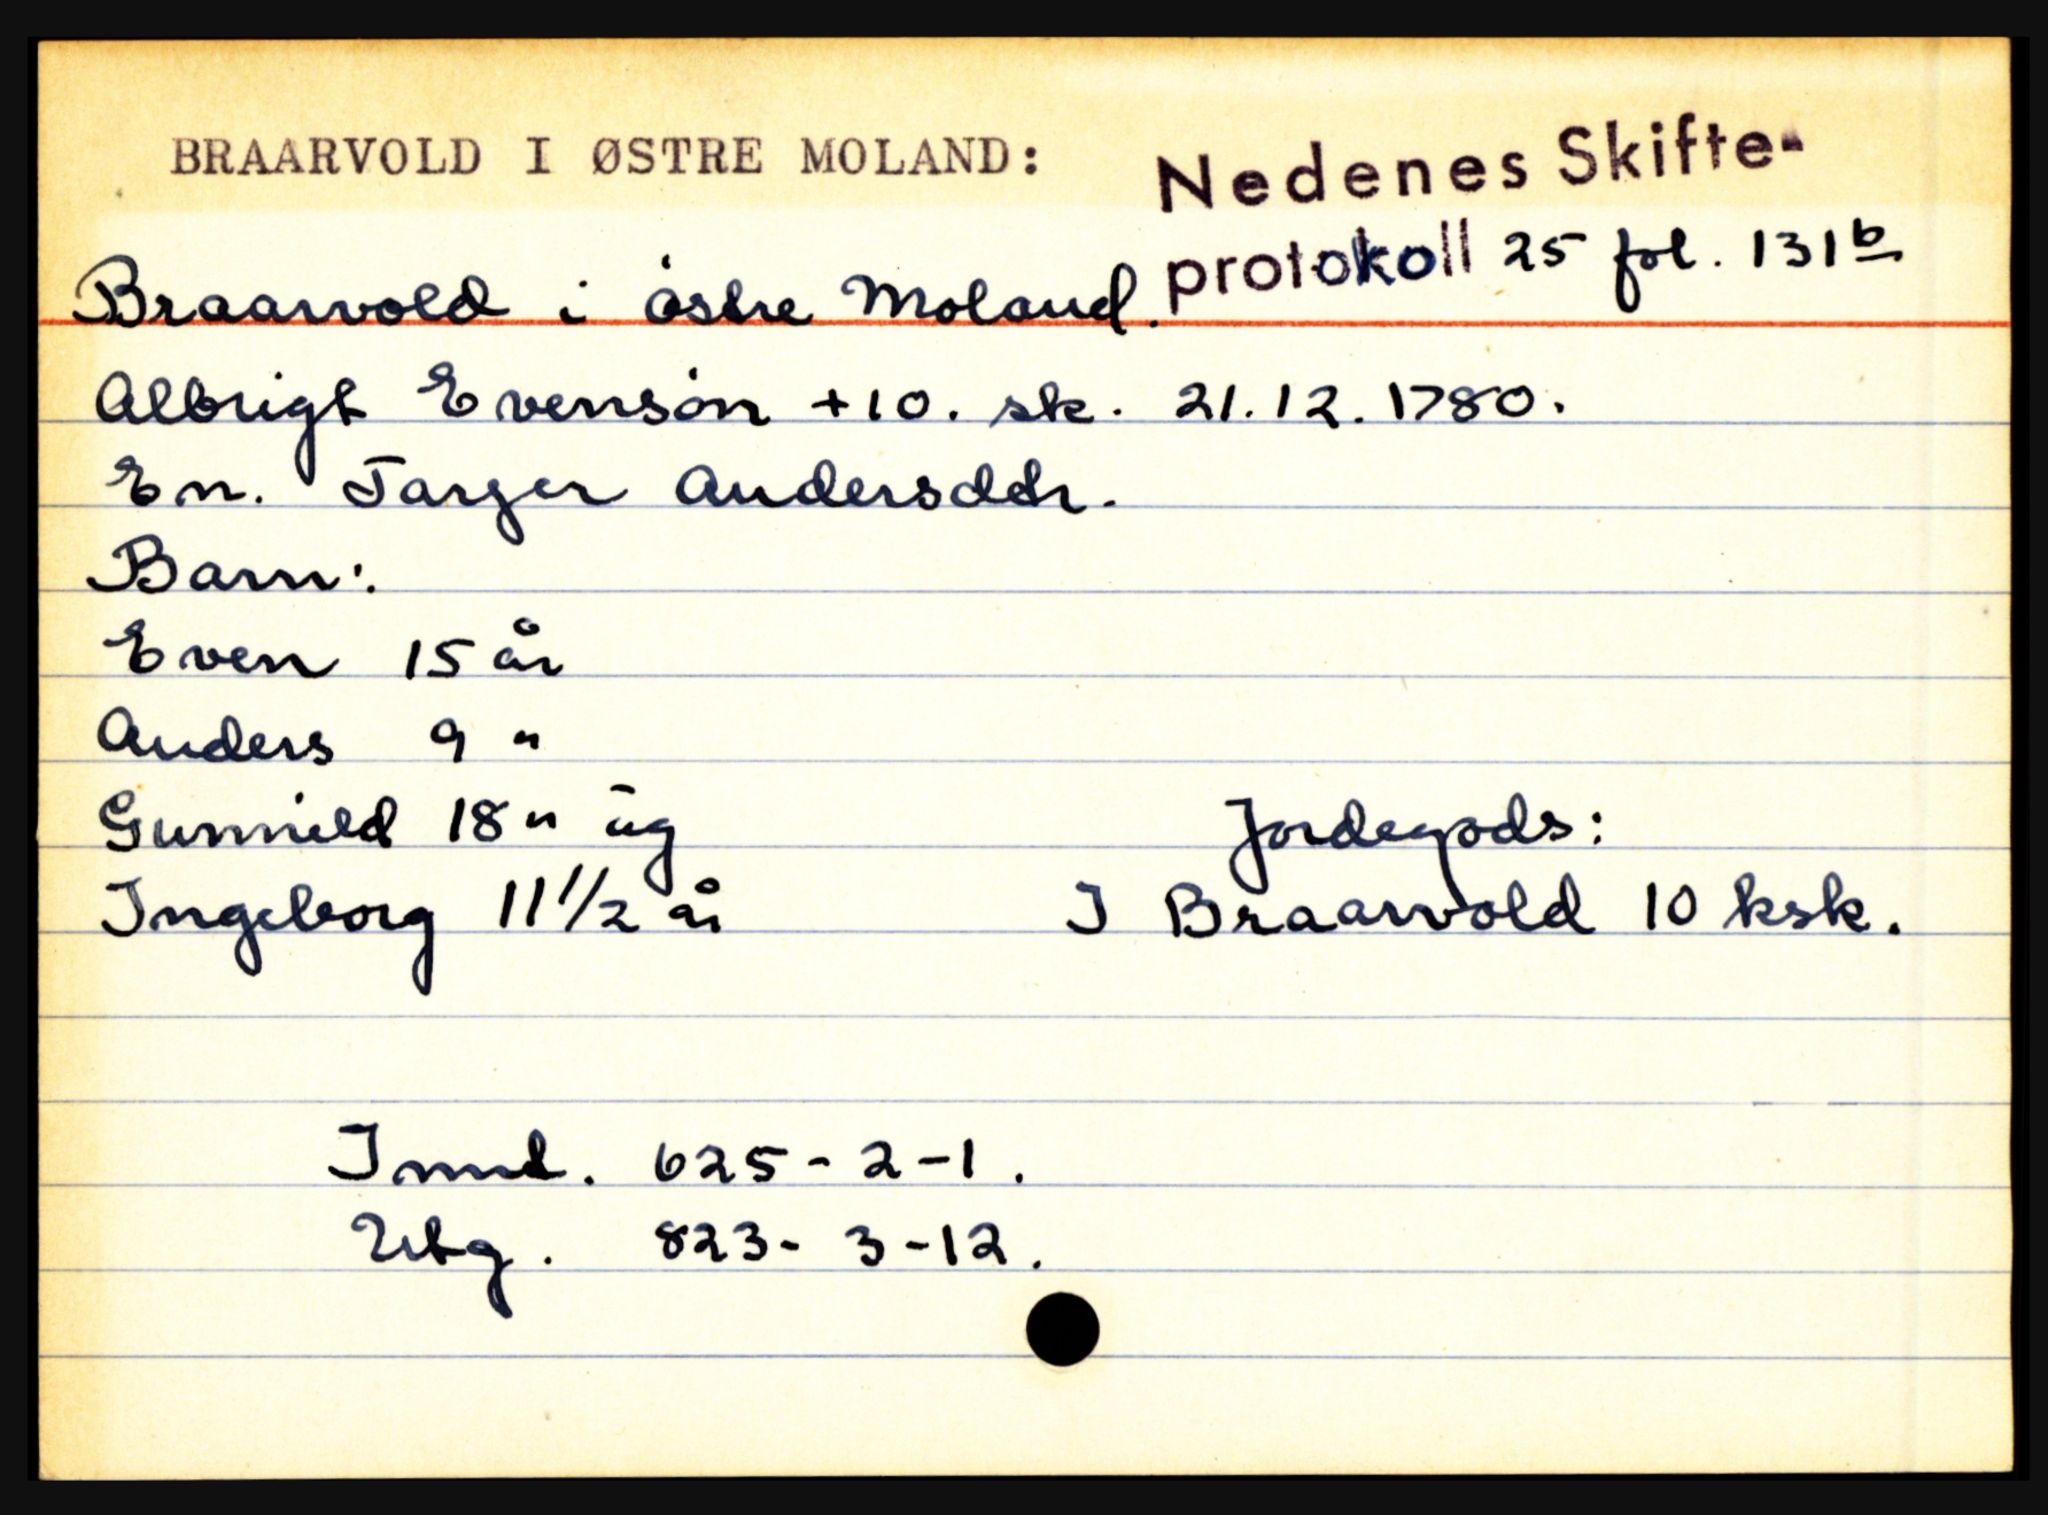 BRAARVOLD I ØSTRE MOLAND:
Nedenes Skifte-
protokoll 25 fol. 131b
Braarvold i östre Moland.
Albrigt Evensön +10. sk. 21.12.1780.
En. Tarjer Andersdtr.
Barn:
Even 15 år
Anders 9 "
Gunnild 18 " ug
Ingeborg 11 1/2 år
Jordegods:
I Braarvold 10 ksk.
Innt. 625-2-1.
Utg. 823-3-12.